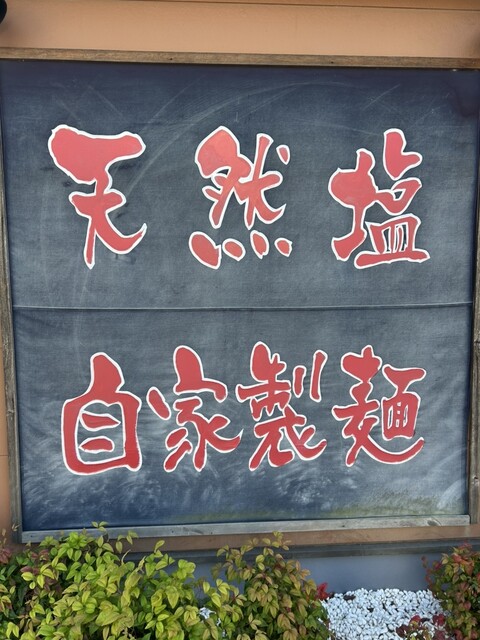 天然塩
自家製麺